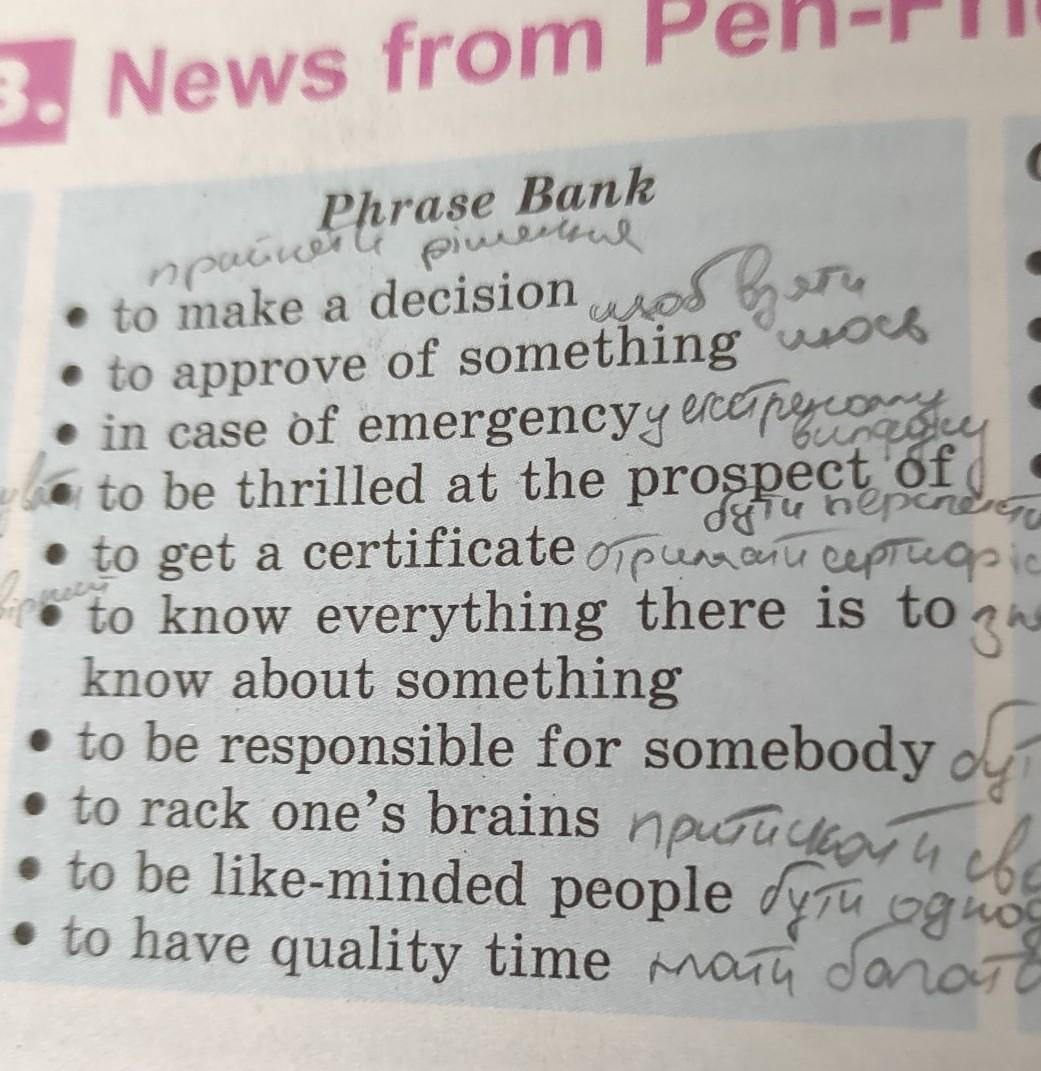 3. News from Pen-Fri
Phrase Bank
прийняти рішення
• to make a decision щоб взяти
• to approve of something щось
• in case of emergency у екстреному
випадку
• to be thrilled at the prospect of
бути
• to get a certificate отримати сертифіс
• to know everything there is to зн
know about something
• to be responsible for somebody бут
• to rack one's brains сво
• to be like-minded people бути одно
• to have quality time мати багат